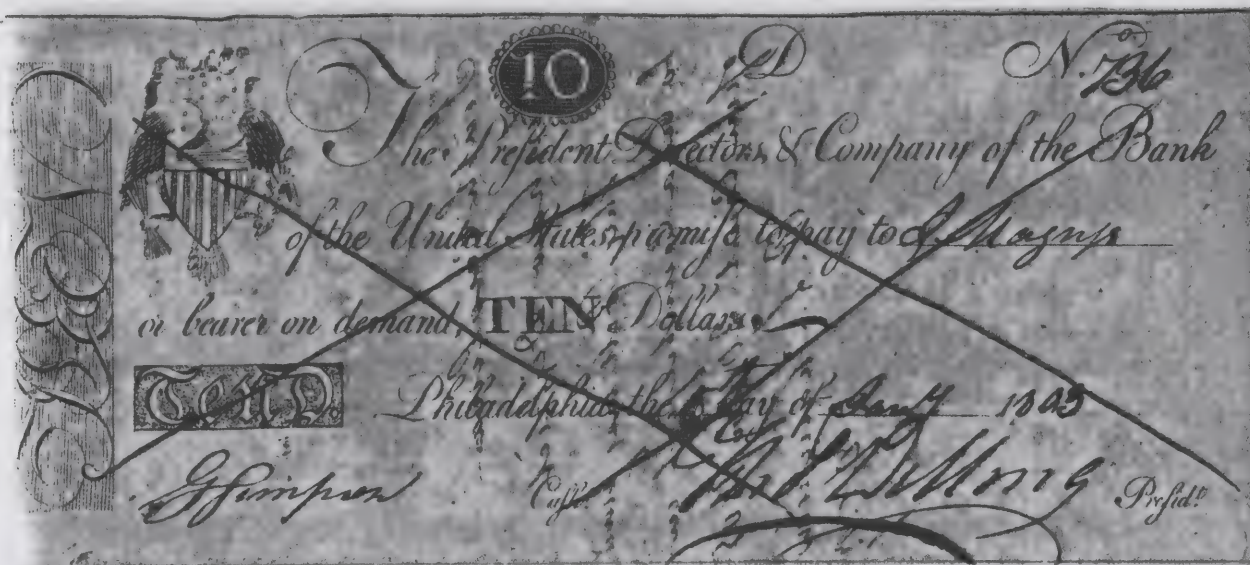 10 D No. 736
The President Directors, & Company of the Bank
of the United States, promise to pay to J. Magnys
or bearer on demand, TEN Dollars,
TEN D. Philadelphia, the day of Jany 1803
G Simpson Cashr. Willing Presidt.